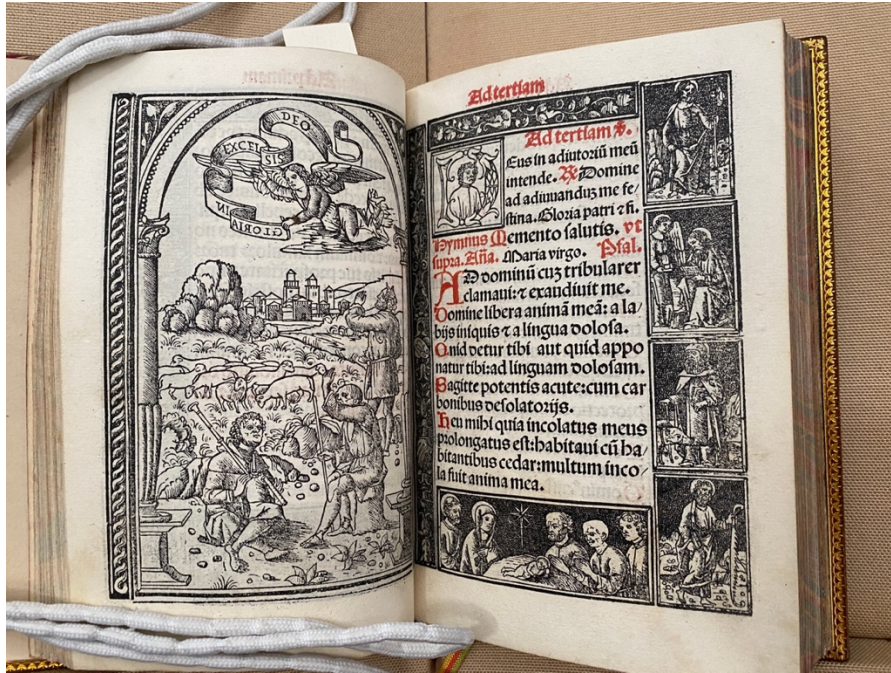 GLORIA
IN
EXCEL
SIS
DEO
Ad tertiam
Ad tertiam.
Eus in adiutoriū meū
intende. Domine
ad adiuuanduz me fe/
stina. Gloria patri ⁊ fi.
Hymnus Memento salutis. vt
supra. Aña. Maria virgo. Psal.
AD dominū cuz tribularer
clamaui: ⁊ exaudiuit me.
Domine libera animā meā: a la/
bijs iniquis ⁊ a lingua dolosa.
Quid detur tibi aut quid appo
natur tibi: ad linguam dolosam.
Sagitte potentis acute: cum car
bonibus desolatorijs.
Heu mihi quia incolatus meus
prolongatus est: habitaui cū ha/
bitantibus cedar: multum inco
la fuit anima mea.